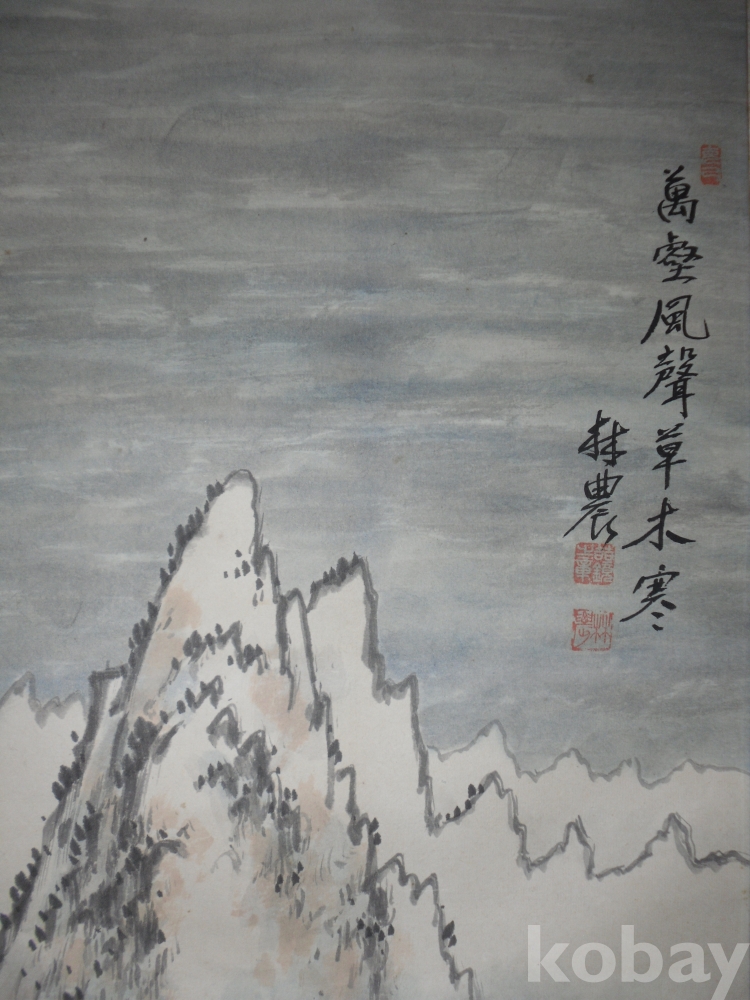 萬壑風聲草木寒
林農
kobay